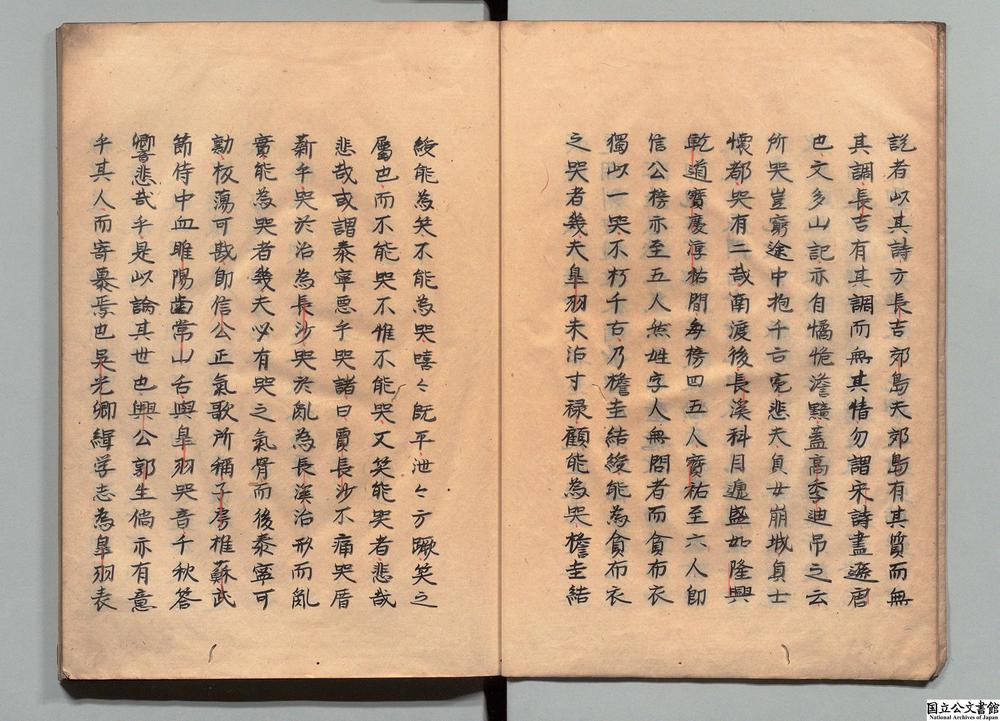 説者以其詩方長吉郊島夫郊島有其質而無
其調長吉有其調而無其情勿謂宋詩盡遜唐
也文多山記亦自憰恑澹黯蓋高季迪吊之云
所哭豈窮途中抱千古寃悲夫貞女崩城貞士
懷都哭有二哉南渡後長溪科目遞盛如隆興
乾道寳慶淳祐間每榜四五人寳祐至六人即
信公榜亦至五人然姓字人無問者而貪布衣
獨以一哭不朽千古乃檐圭結綬能為貪布衣
之哭者幾夫皐羽未沾寸禄顧能為哭檐圭結
綬能為笑不能為哭嘻々既平泄々方蹶笑之
屬也而不能哭不惟不能哭又笑能哭者悲哉
悲哉或謂泰寧悪乎哭諸曰賈長沙不痛哭厝
薪乎哭於治為長沙哭於亂為長溪治形而亂
實能為哭者幾夫必有哭之氣骨而後泰寧可
勷板蕩可戡即信公正氣歌所稱子房椎蘇武
節侍中血睢陽齒常山舌與皐羽哭音千秋答
響悲哉乎是以論其世也興公郭生倘亦有意
乎其人而寄慕焉也吳光卿緝学志為皐羽表
国立公文書館
National Archives of Japan